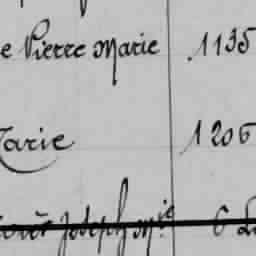 e Pierre Marie 1135
Marie 1206
Joseph Mie 6